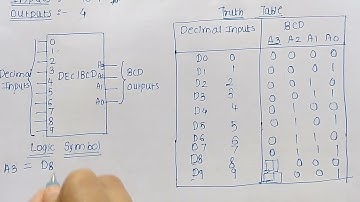 Outputs:- 4
Truth Table
Decimal Inputs BCD
A3 A2 A1 A0
D0 0 0 0 0 0
D1 1 0 0 0 1
D2 2 0 0 1 0
D3 3 0 0 1 1
D4 4 0 1 0 0
D5 5 0 1 0 1
D6 6 0 1 1 0
D7 7 0 1 1 1
D8 8 1 0 0 0
D9 9 1 0 0 1
Decimal Inputs
0
1
2
3
4
5
6
7
8
9
DEC|BCD
A3
A2
A1
A0
BCD Outputs
Logic Symbol
A3 = D8